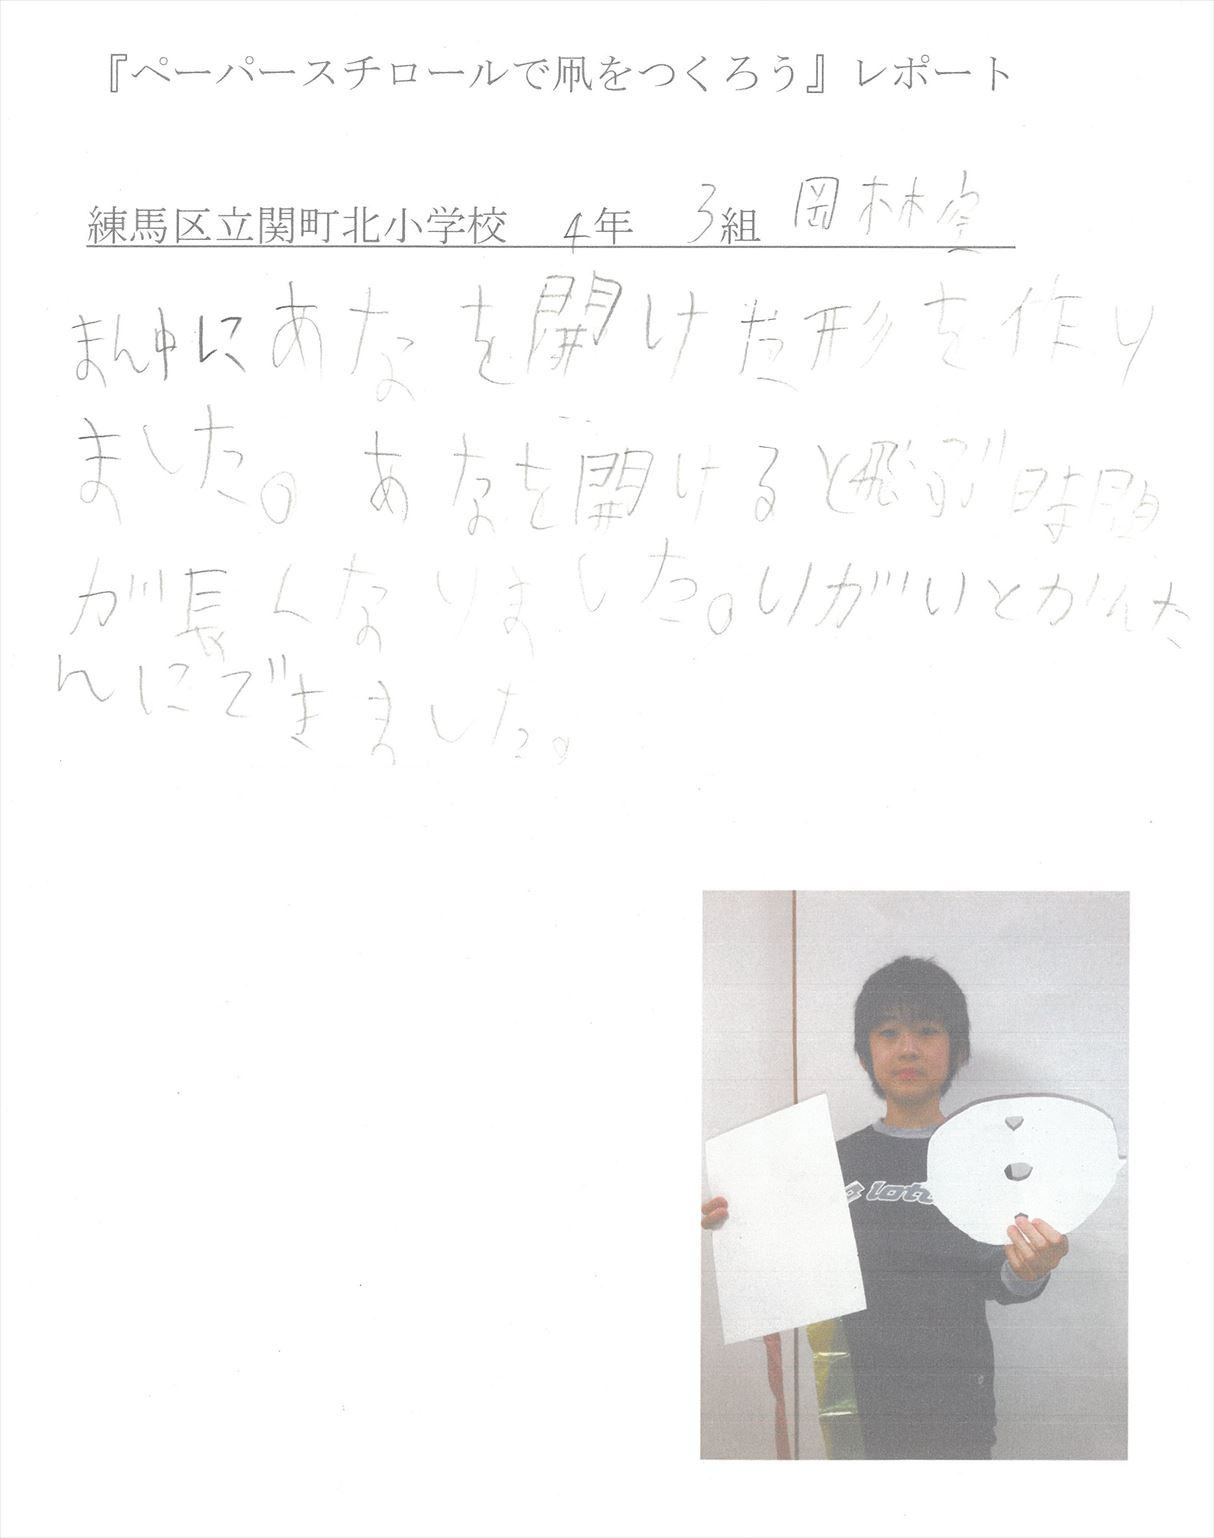 『ペーパースチロールで凧をつくろう』レポート
練馬区立関町北小学校 4年 3組 岡林空
まん中にあなを開けた形を作り
ました。あなを開けると飛ぶ時間
が長くなりました。いがいとかんた
んにできました。
lotto